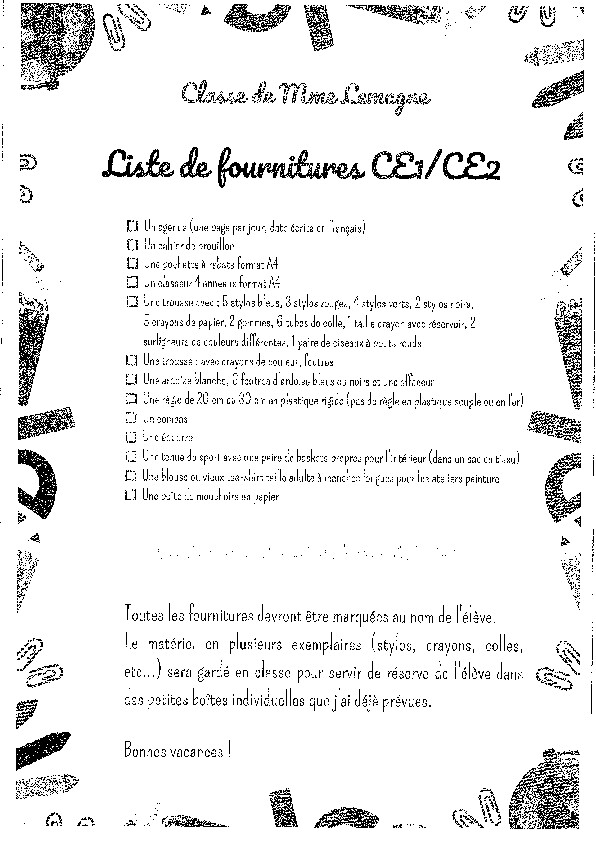 Classe de Mme Lemagne
Liste de fournitures CE1/CE2
Un agenda (une page par jour, date écrite en français)
Un cahier de brouillon
Une pochette à rabats format A4
Un classeur 4 anneaux format A4
Une trousse avec : 5 stylos bleus, 3 stylos rouges, 4 stylos verts, 2 stylos noirs,
5 crayons de papier, 2 gommes, 6 tubes de colle, 1 taille crayon avec réservoir, 2
surligneurs de couleurs différentes, 1 paire de ciseaux à bouts ronds
Une trousse avec crayons de couleur, feutres
Une ardoise blanche, 6 feutres d'ardoise bleus ou noirs et une effaceur
Une règle de 20 cm ou 30 cm en plastique rigide (pas de règle en plastique souple ou en fer)
Un compas
Une équerre
Une tenue de sport avec une paire de baskets propres pour l'intérieur (dans un sac en tissu)
Une blouse ou vieux tee-shirt taille adulte à manches longues pour les ateliers peinture
Une boîte de mouchoirs en papier
Toutes les fournitures devront être marquées au nom de l'élève.
Le matériel en plusieurs exemplaires (stylos, crayons, colles,
etc...) sera gardé en classe pour servir de réserve de l'élève dans
des petites boîtes individuelles que j'ai déjà prévues.
Bonnes vacances !